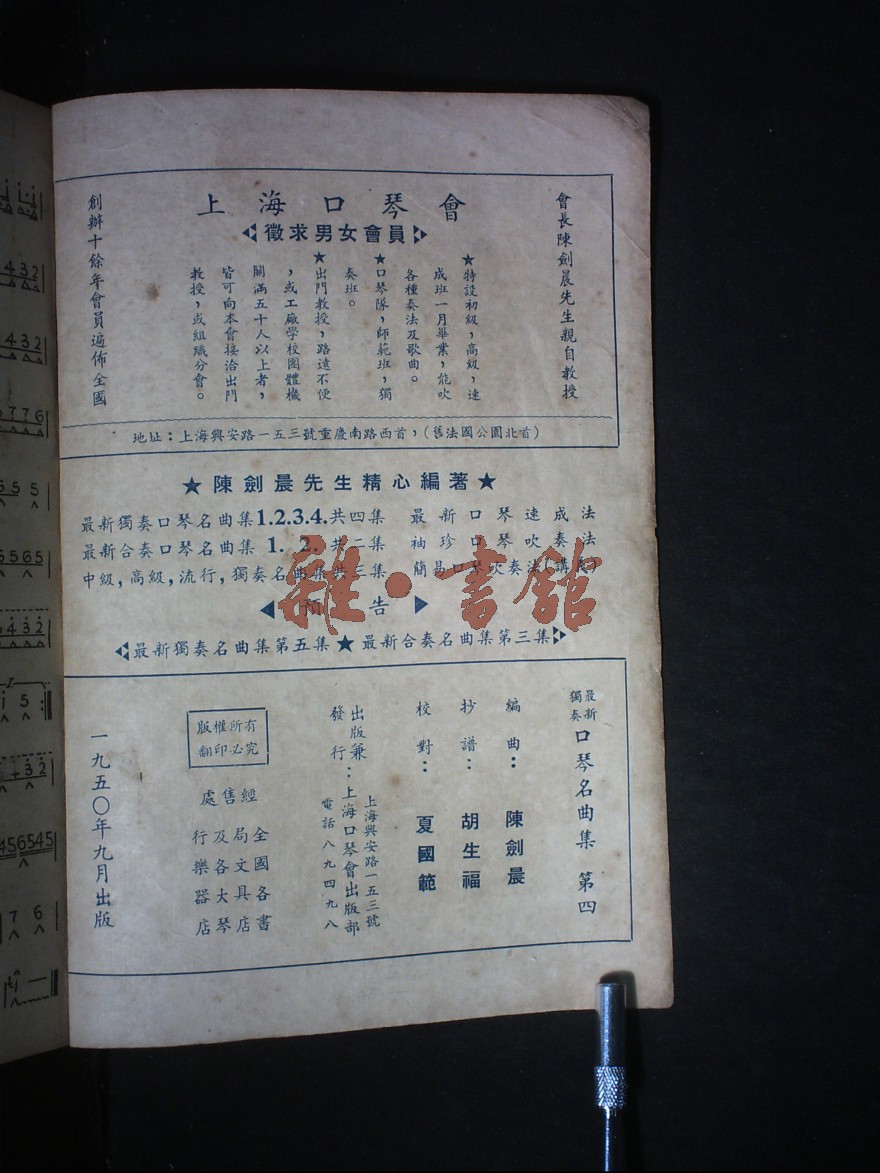 上海口琴會
徵求男女會員
會長陳劍晨先生親自教授
★特設初級,高級,速
成班一月畢業,能吹
各種奏法及歌曲。
★口琴隊,師範班,獨
奏班。
★出門教授,路遠不便
,或工廠學校團體機
關滿五十人以上者,
皆可向本會接洽出門
教授,或組織分會。
創辦十餘年會員遍佈全國
地址:上海興安路一五三號重慶南路西首,(舊法國公園北首)
★陳劍晨先生精心編著★
最新獨奏口琴名曲集1.2.3.4.共四集 最新口琴速成法
最新合奏口琴名曲集 1. 2. 共二集 袖珍口琴吹奏法
中級,高級,流行,獨奏名曲集共三集 簡易口琴吹奏法(講義)
預告
最新獨奏名曲集第五集★最新合奏名曲集第三集
最新獨奏 口琴名曲集 第四
編曲:陳劍晨
抄譜:胡生福
校對:夏國範
出版兼發行:上海口琴會出版部
上海興安路一五三號
電話八九四九八
版權所有
翻印必究
經售處
全國各書
局文具店
及各大琴
行樂器店
一九五〇年九月出版
雜·書館